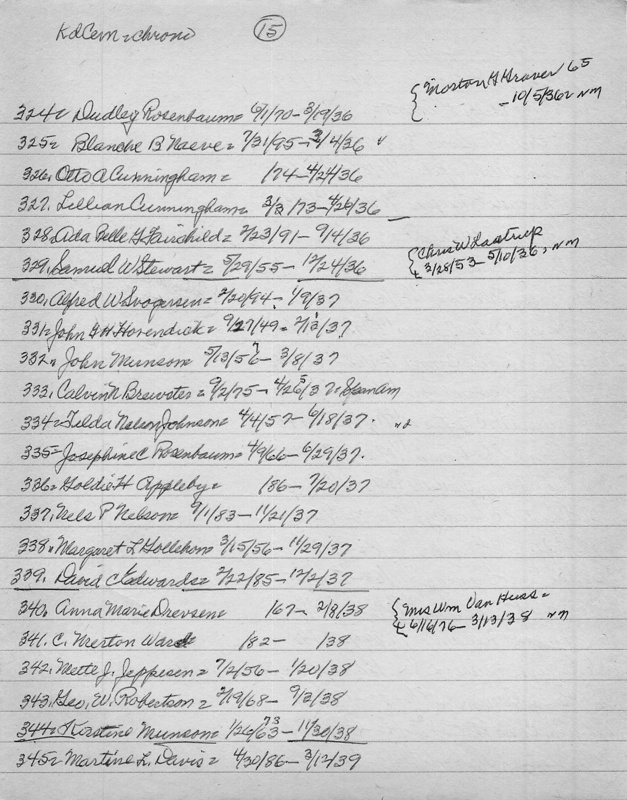 KdCem = chrono (15)
{ Morton G Graver 65
- 10/5/36 = nm
324 = Dudley Rosenbaum = 6/1/70 - 3/19/36
325 = Blanche B Naeve = 7/31/95 - 3/14/36 v
326. Otto A Cunningham = /74 - 4/24/36
327. Lillian Cunningham = 3/2/73 - 4/26/36
328. Ada Belle G Fairchild = 2/23/91 - 9/14/36
{ Chris W Lastrup
2/28/53 - 5/10/36, nm
329. Samuel W Stewart = 5/29/55 - 12/24/36
330. Alfred W Svogersen = 2/20/94 - 1/9/37
331. John G H Horendick = 9/27/49 = 2/12/37
332. John Munson = 5/13/56 - 3/8/37
333. Calvin N Brewster = 9/2/75 - 4/26/37 = Span Am
334 = Tilda Nelson Johnson = 4/4/57 - 6/18/37.
335 = Josephine C Rosenbaum = 4/9/66 - 6/29/37.
336 = Goldie H Appleby = /86 - 7/20/37
337. Nels P Nelson = 9/1/83 - 11/21/37
338. Margaret L Gollehon = 3/15/56 - 11/29/37
339. David C Edwards = 2/22/85 - 12/2/37
340. Anna Marie Drevsen = /67 - 2/8/38
{ Mrs Wm Van Huss =
6/16/76 - 3/13/38 nm
341. C. Merton Ward /82 - /38
342. Mette J. Jeppesen = 7/2/56 - 1/20/38
343. Geo. W. Robertson = 2/19/68 - 9/3/38
344 = Kirstine Munson = 1/26/63 73 - 11/30/38
345 = Martine L. Davis = 4/30/86 - 3/12/39